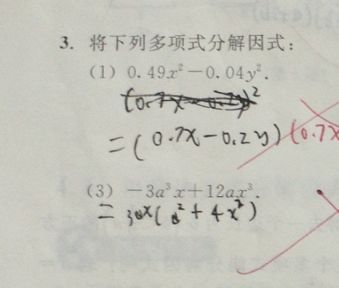 3. 将下列多项式分解因式：
(1) 0.49x²－0.04y².
=(0.7x-0.2y)(0.7x
(3) －3a³x＋12ax³.
=3ax(a²+4x²)